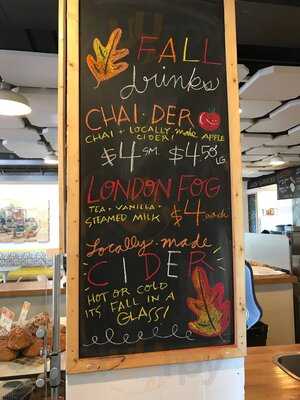 FALL
drinks
CHAI·DER
CHAI + LOCALLY made APPLE
CIDER!
$4 SM. $4.50 LG.
LONDON FOG
TEA + VANILLA +
STEAMED MILK $4 each
Locally-made
CIDER
HOT OR COLD
ITS FALL IN A
GLASS!